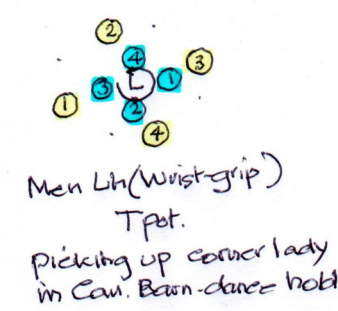 2
4
3
3
L
1
1
2
4
Men LH (Wrist-grip)
T pot.
picking up corner lady
in Can. Barn-dance hold